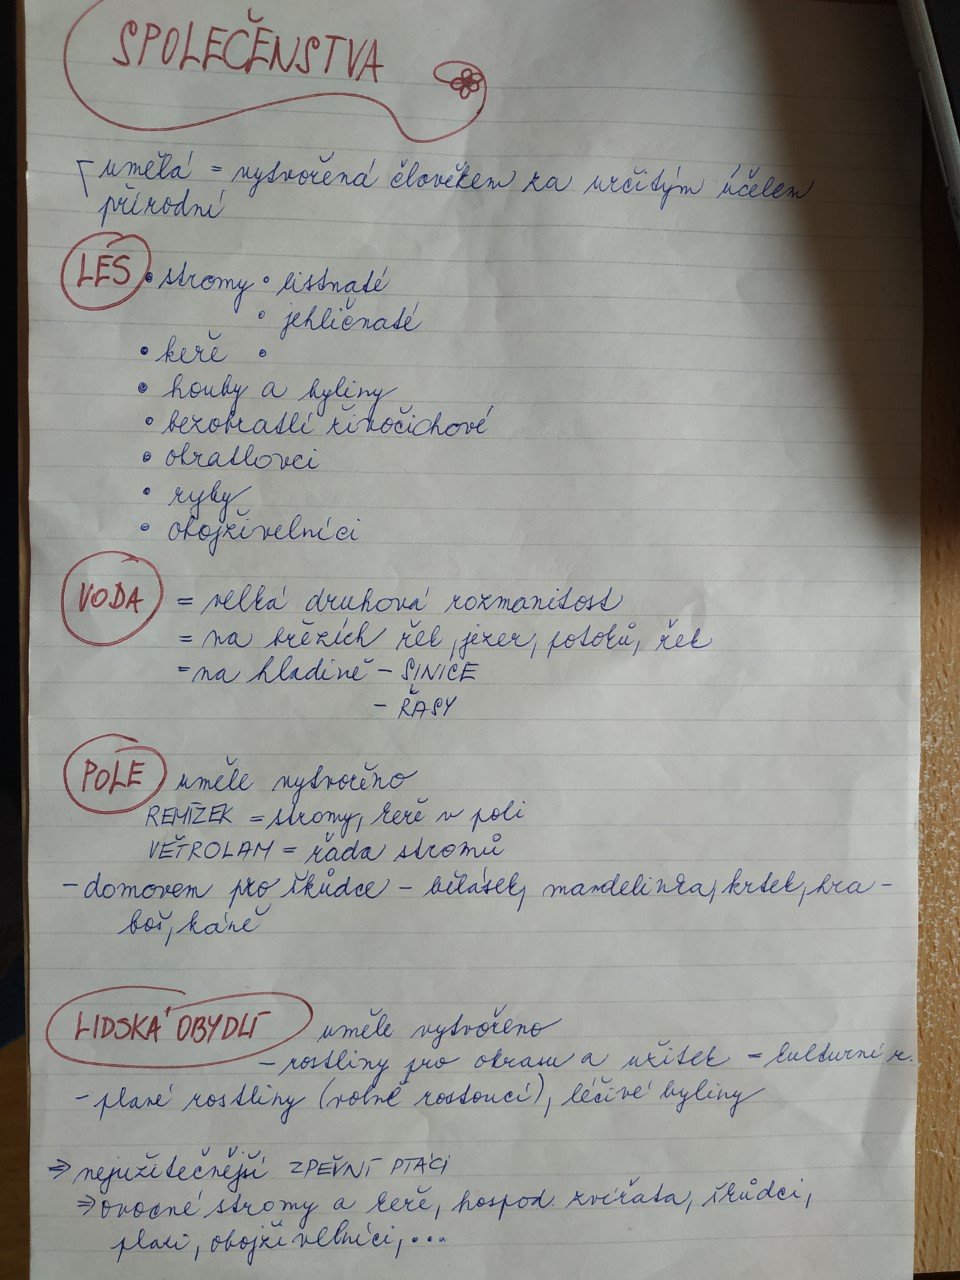 SPOLEČENSTVA
umělá = vytvořená člověkem za určitým účelem
přírodní
LES • stromy • listnaté
• jehličnaté
• keře •
• houby a byliny
• bezobratlí živočichové
• obratlovci
• ryby
• obojživelníci
VODA = velká druhová rozmanitost
= na březích řek, jezer, potoků, řek
= na hladině - SINICE
- ŘASY
POLE uměle vytvořeno
REMÍZEK = stromy, keře v poli
VĚTROLAM = řada stromů
- domovem pro škůdce - bělásek, mandelinka, krtek, hra-
boš, káně
LIDSKÁ OBYDLÍ uměle vytvořeno
- rostliny pro okrasu a užitek = kulturní r.
- plané rostliny (volně rostoucí), léčivé byliny
⇒ nejužitečnější ZPĚVNÍ PTÁCI
⇒ ovocné stromy a keře, hospod. zvířata, škůdci,
plazi, obojživelníci, ...